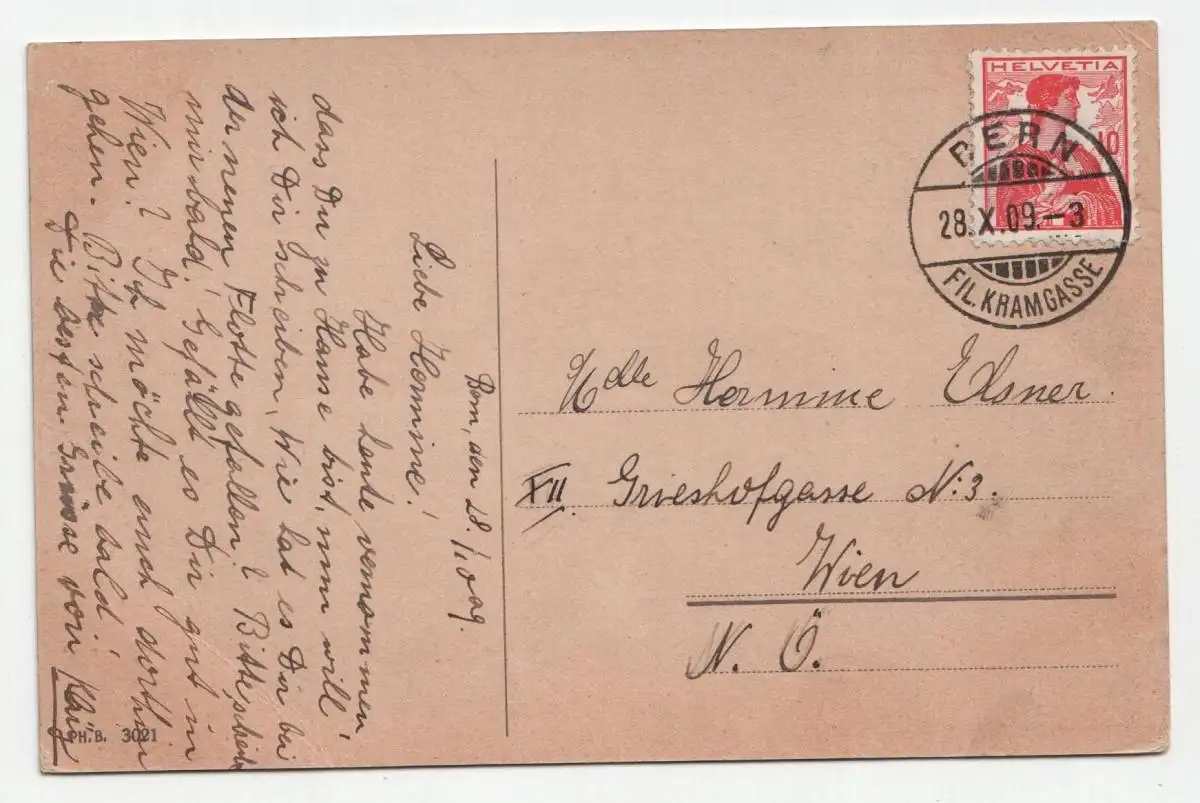 HELVETIA
10
BERN
28.X.09.-3
FIL. KRAMGASSE
Mdlle Hermine Elsner.
XII. Grieshofgasse N:3.
Wien
N. Ö.
Bern, den 28./10 09.
Liebe Hermine!
Habe heute vernommen
dass Du zu Hause bist, nun will
ich Dir schreiben, Wie hat es Dir bei
der neuen Flotte gefallen? Bitte, schreibe
mir bald! Gefällt es Dir gut in
Wien? Ich möchte auch dorthin
gehen. Bitte schreibe bald!
Die besten Grüsse von
PH.B. 3021